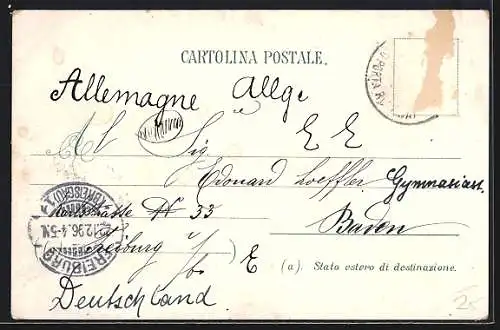 CARTOLINA POSTALE.
Allemagne Allge
PORTA
Al Sig
E E
Edouard Loeffler Gymnasiast
strasse N 33 Baden
Freiburg i/b E
(a). Stato estero di destinazione.
Deutschland
FREIBURG
(BREISGAU) 1.
12.96.4-5N.